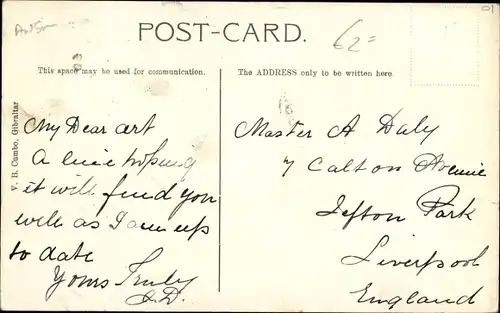 POST-CARD.
£2=
This space may be used for communication.
The ADDRESS only to be written here.
V. B. Cumbo, Gibraltar
My Dear art
A line hoping
it will find you
well as I am up
to date
Yours Truly
J.D.
Master A Daly
7 Calton Avenue
Sefton Park
Liverpool
England